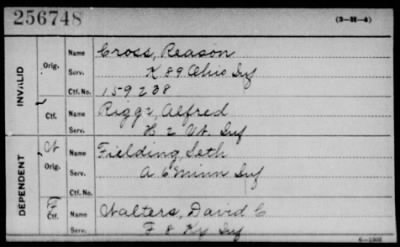 256748
(3-31-4)
INVALID
Orig.
Name Cross, Reason
Serv. K 89 Ohio Inf
Ctf. No. 159238
Ctf.
Name Riggs, Alfred
Serv. H 2 Vt. Inf
DEPENDENT
Orig.
Name Fielding, Seth
Serv. A 6 Minn Inf
Ctf. No.
Ctf.
Name Walters, David C
Serv. F 8 Ky Inf